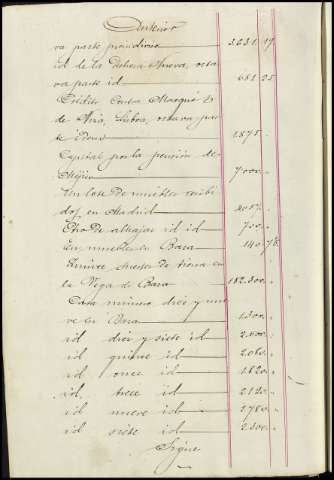 Anterior
va parte proindiviso 3.631. 19
id de la Dehesa Nueva, octa
va parte id 681. 25
Crédito contra Marqués D.
de Aria, Lisboa, octava par
te 1875.
Capital por la pensión de
Mejia 7000.
Un lote de muebles recibi
dos en Madrid 2007.
Otro de alhajas id id 700.
Un muebles en Baza 140. 78
Quince de tierra en
la Vega de Baza 182.500.
Casa número diez y nue
ve en Baza 1.500.
id diez y siete id 2.500.
id quince id 2.060.
id once id 1.820.
id trece id 2.120.
id nueve id 1.780.
id siete id 2.300.
Sigue